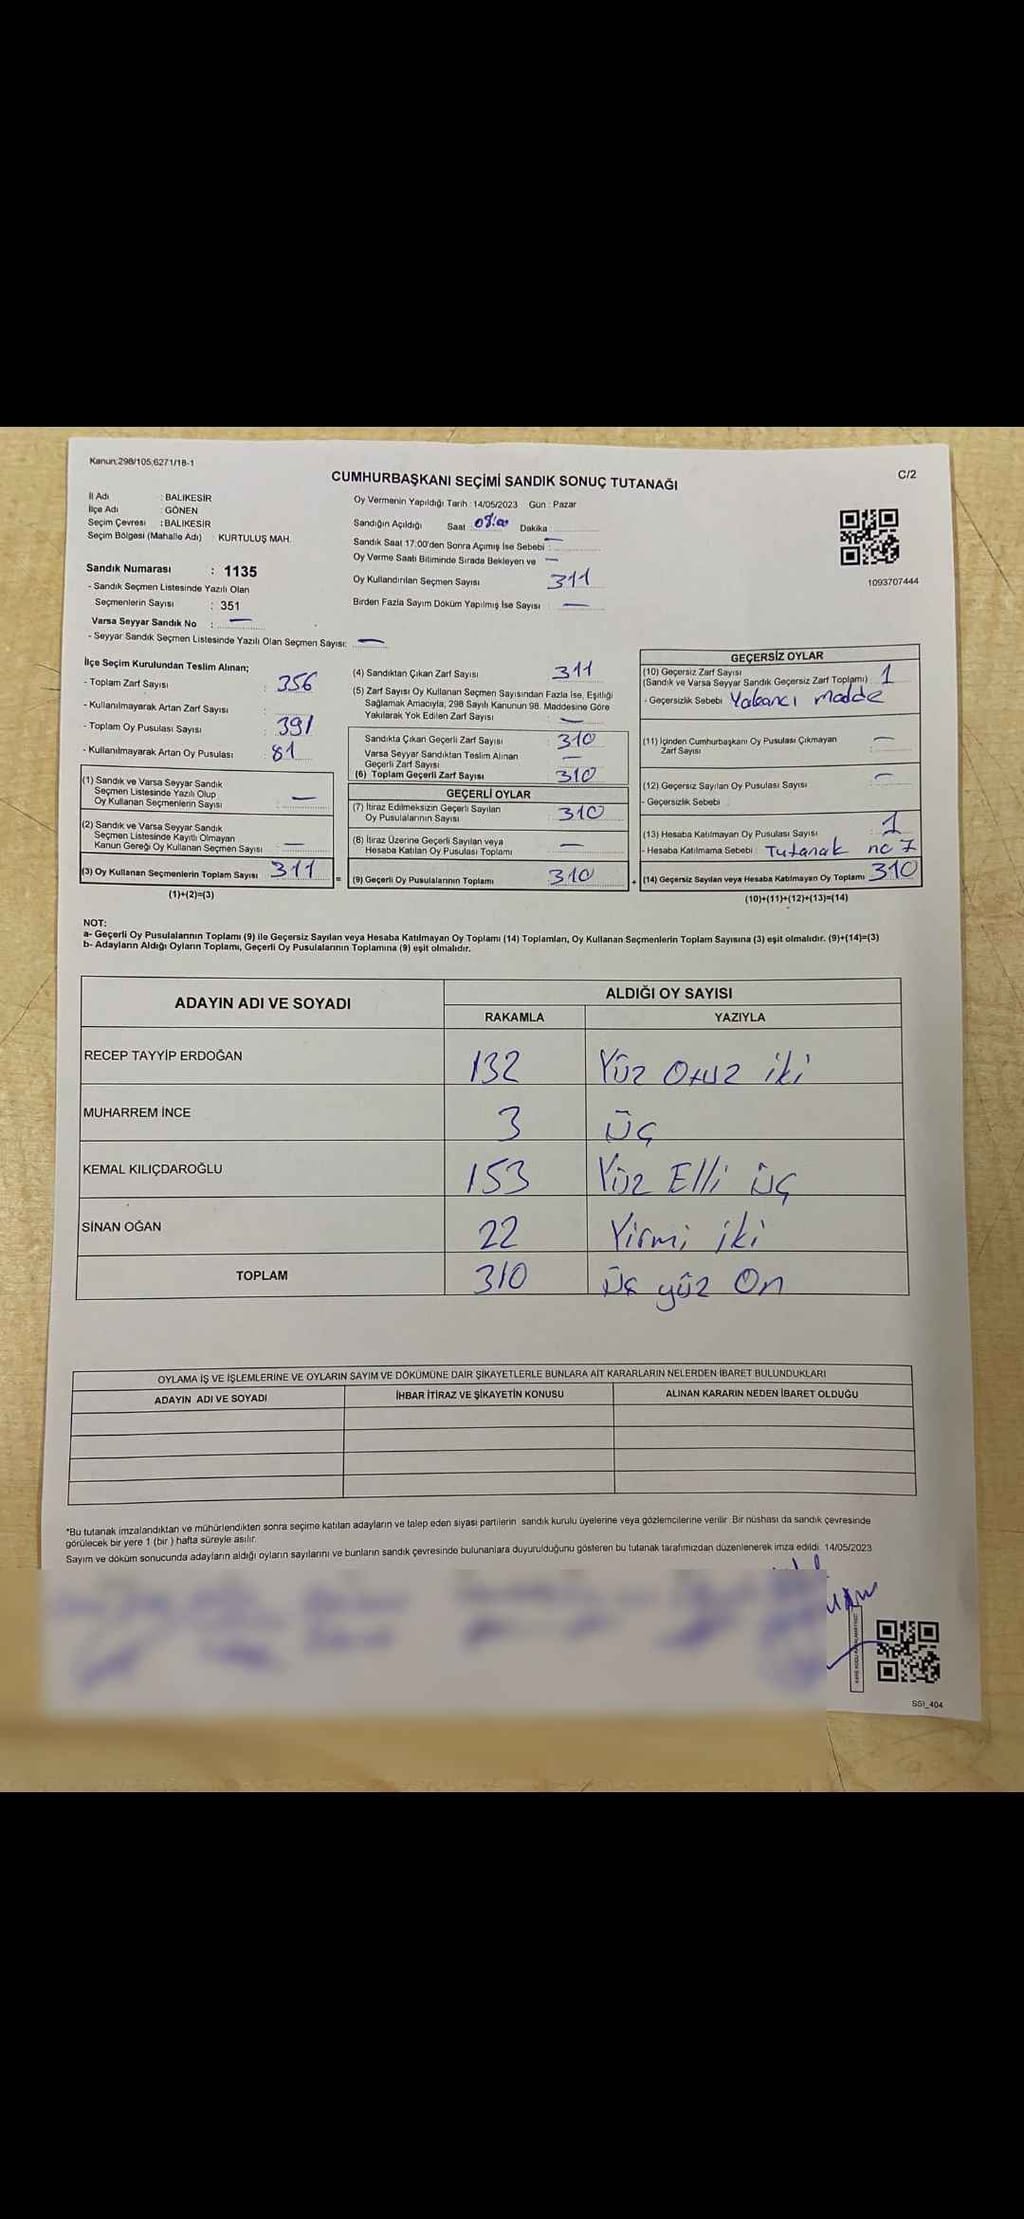 Kanun:298/105;6271/18-1
C/2
CUMHURBAŞKANI SEÇİMİ SANDIK SONUÇ TUTANAĞI
İl Adı : BALIKESİR
İlçe Adı : GÖNEN
Seçim Çevresi : BALIKESİR
Seçim Bölgesi (Mahalle Adı) : KURTULUŞ MAH.
Sandık Numarası : 1135
- Sandık Seçmen Listesinde Yazılı Olan
Seçmenlerin Sayısı : 351
Varsa Seyyar Sandık No : —
- Seyyar Sandık Seçmen Listesinde Yazılı Olan Seçmen Sayısı: —
Oy Vermenin Yapıldığı Tarih : 14/05/2023 Gün : Pazar
Sandığın Açıldığı Saat 08:00 Dakika
Sandık Saat 17:00'den Sonra Açımış İse Sebebi : —
Oy Verme Saati Bitiminde Sırada Bekleyen ve —
Oy Kullandırılan Seçmen Sayısı 311
Birden Fazla Sayım Döküm Yapılmış İse Sayısı —
1093707444
İlçe Seçim Kurulundan Teslim Alınan;
- Toplam Zarf Sayısı : 356
- Kullanılmayarak Artan Zarf Sayısı :
- Toplam Oy Pusulası Sayısı : 391
- Kullanılmayarak Artan Oy Pusulası : 81
(1) Sandık ve Varsa Seyyar Sandık
Seçmen Listesinde Yazılı Olup
Oy Kullanan Seçmenlerin Sayısı : —
(2) Sandık ve Varsa Seyyar Sandık
Seçmen Listesinde Kayıtlı Olmayan
Kanun Gereği Oy Kullanan Seçmen Sayısı : —
(3) Oy Kullanan Seçmenlerin Toplam Sayısı : 311
(1)+(2)=(3)
=
(4) Sandıktan Çıkan Zarf Sayısı : 311
(5) Zarf Sayısı Oy Kullanan Seçmen Sayısından Fazla İse, Eşitliği
Sağlamak Amacıyla, 298 Sayılı Kanunun 98. Maddesine Göre
Yakılarak Yok Edilen Zarf Sayısı : —
Sandıkta Çıkan Geçerli Zarf Sayısı : 310
Varsa Seyyar Sandıktan Teslim Alınan
Geçerli Zarf Sayısı : —
(6) Toplam Geçerli Zarf Sayısı : 310
GEÇERLİ OYLAR
(7) İtiraz Edilmeksizin Geçerli Sayılan
Oy Pusulalarının Sayısı : 310
(8) İtiraz Üzerine Geçerli Sayılan veya
Hesaba Katılan Oy Pusulası Toplamı : —
(9) Geçerli Oy Pusulalarının Toplamı : 310
+
GEÇERSİZ OYLAR
(10) Geçersiz Zarf Sayısı
(Sandık ve Varsa Seyyar Sandık Geçersiz Zarf Toplamı) 1
- Geçersizlik Sebebi Yabancı madde
(11) İçinden Cumhurbaşkanı Oy Pusulası Çıkmayan
Zarf Sayısı : —
(12) Geçersiz Sayılan Oy Pusulası Sayısı : —
- Geçersizlik Sebebi
(13) Hesaba Katılmayan Oy Pusulası Sayısı : 1
- Hesaba Katılmama Sebebi : Tutanak no 7
(14) Geçersiz Sayılan veya Hesaba Katılmayan Oy Toplamı : 310
(10)+(11)+(12)+(13)=(14)
NOT:
a- Geçerli Oy Pusulalarının Toplamı (9) ile Geçersiz Sayılan veya Hesaba Katılmayan Oy Toplamı (14) Toplamları, Oy Kullanan Seçmenlerin Toplam Sayısına (3) eşit olmalıdır. (9)+(14)=(3)
b- Adayların Aldığı Oyların Toplamı, Geçerli Oy Pusulalarının Toplamına (9) eşit olmalıdır.
ADAYIN ADI VE SOYADI
ALDIĞI OY SAYISI
RAKAMLA YAZIYLA
RECEP TAYYİP ERDOĞAN 132 Yüz Otuz iki
MUHARREM İNCE 3 Üç
KEMAL KILIÇDAROĞLU 153 Yüz Elli üç
SİNAN OĞAN 22 Yirmi iki
TOPLAM 310 Üç yüz On
OYLAMA İŞ VE İŞLEMLERİNE VE OYLARIN SAYIM VE DÖKÜMÜNE DAİR ŞİKAYETLERLE BUNLARA AİT KARARLARIN NELERDEN İBARET BULUNDUKLARI
ADAYIN ADI VE SOYADI İHBAR İTİRAZ VE ŞİKAYETİN KONUSU ALINAN KARARIN NEDEN İBARET OLDUĞU
*Bu tutanak imzalandıktan ve mühürlendikten sonra seçime katılan adayların ve talep eden siyasi partilerin sandık kurulu üyelerine veya gözlemcilerine verilir. Bir nüshası da sandık çevresinde
görülecek bir yere 1 (bir ) hafta süreyle asılır.
Sayım ve döküm sonucunda adayların aldığı oyların sayılarını ve bunların sandık çevresinde bulunanlara duyurulduğunu gösteren bu tutanak tarafımızdan düzenlenerek imza edildi. 14/05/2023
SSI_404